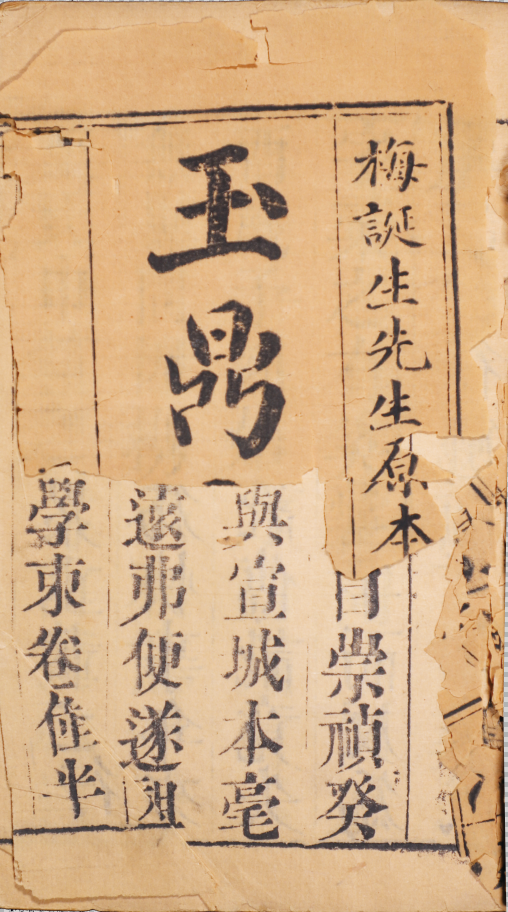 梅誕生先生原本
玉鼎
自崇禎癸
與宣城本毫
遠弗便遂
學束卷僅半